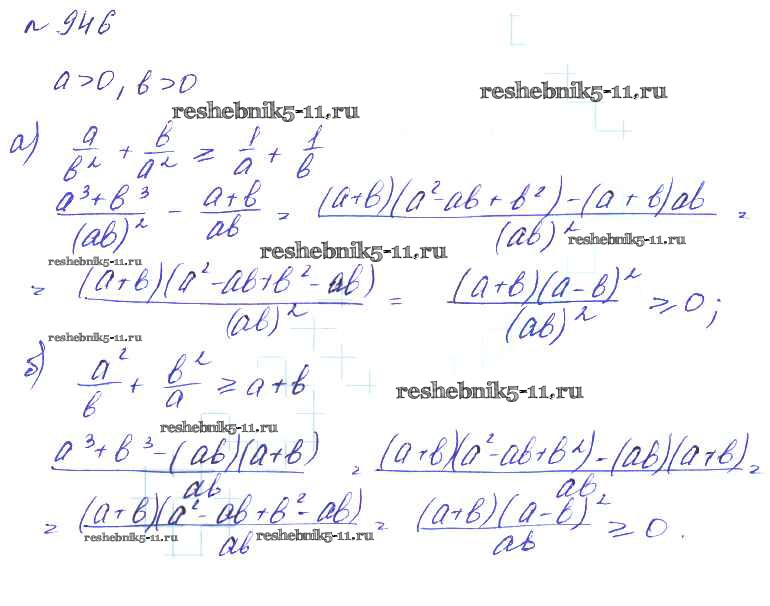 № 946
a>0, b>0
reshebnik5-11.ru
reshebnik5-11.ru
а) a/b² + b/a² ≥ 1/a + 1/b
(a³+b³)/(ab)² - (a+b)/ab = ((a+b)(a²-ab+b²)-(a+b)ab)/(ab)² =
reshebnik5-11.ru
reshebnik5-11.ru
reshebnik5-11.ru
= ((a+b)(a²-ab+b²-ab))/(ab)² = ((a+b)(a-b)²)/(ab)² ≥ 0;
reshebnik5-11.ru
б) a²/b + b²/a ≥ a+b
reshebnik5-11.ru
reshebnik5-11.ru
(a³+b³-(ab)(a+b))/ab = ((a+b)(a²-ab+b²)-(ab)(a+b))/ab =
= ((a+b)(a²-ab+b²-ab))/ab = ((a+b)(a-b)²)/ab ≥ 0.
reshebnik5-11.ru
reshebnik5-11.ru